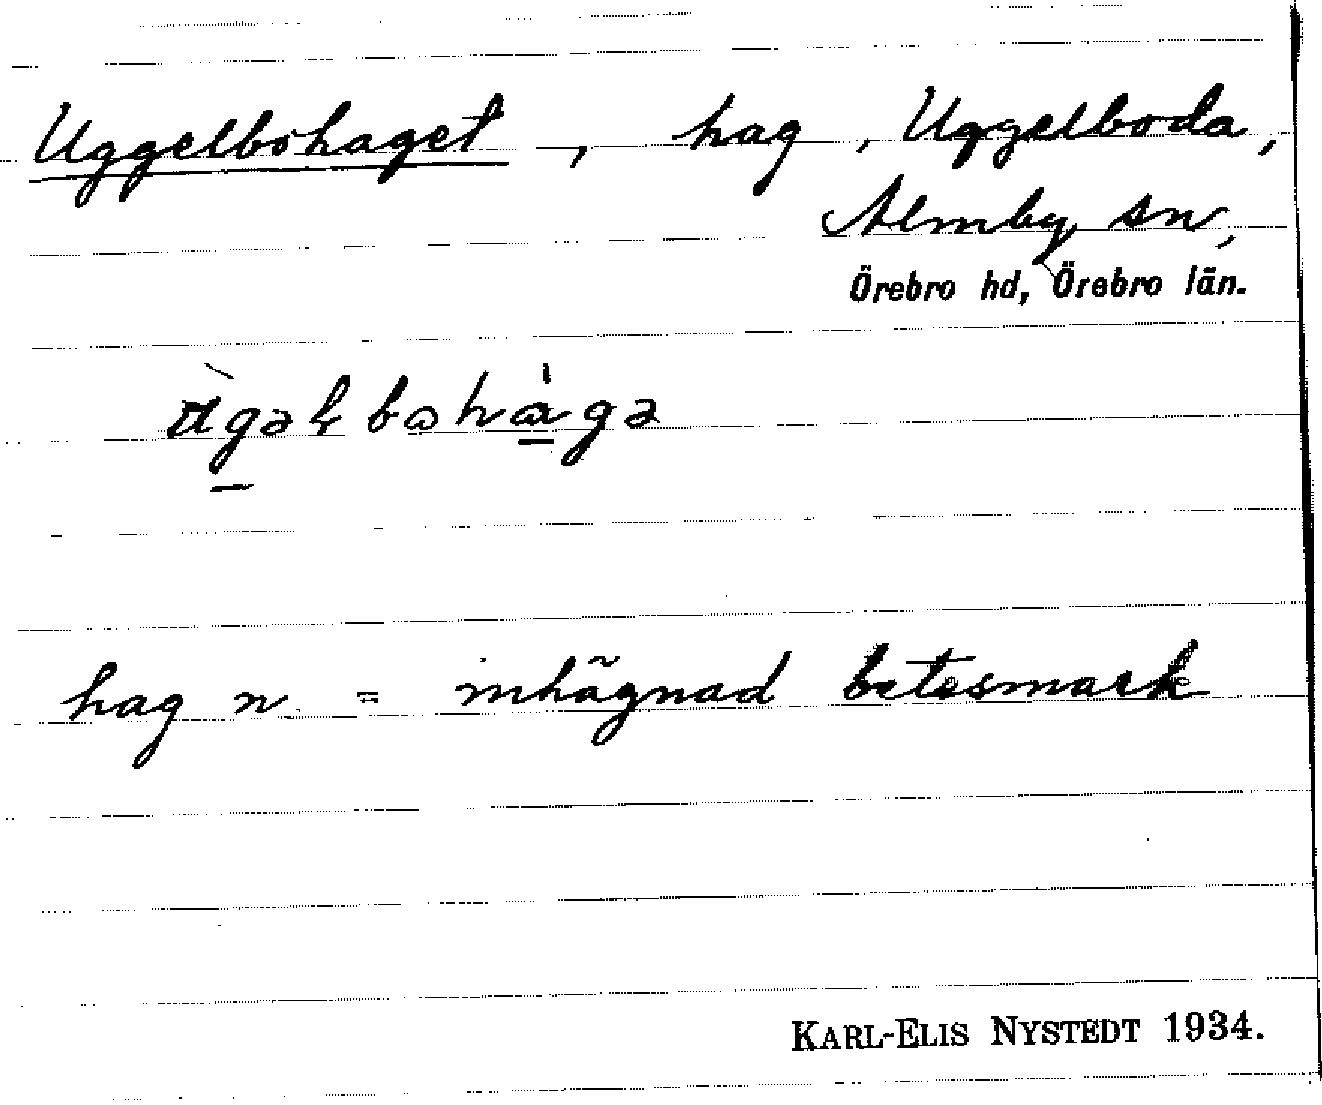 Uggelbohaget, hag, Uggelboda,
Almby sn,
Örebro hd, Örebro län.
hag n. = inhägnad betesmark
KARL-ELIS NYSTEDT 1934.